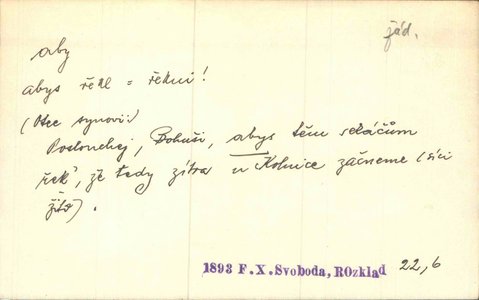 žád.
aby
abys řekl = řekni!
(Otec synovi:)
Poslouchej, Bohuši, abys těm sekáčům
řek', že tedy zítra u Kolnice začneme (síci
žito).
1893 F.X.Svoboda, ROzklad 22,6